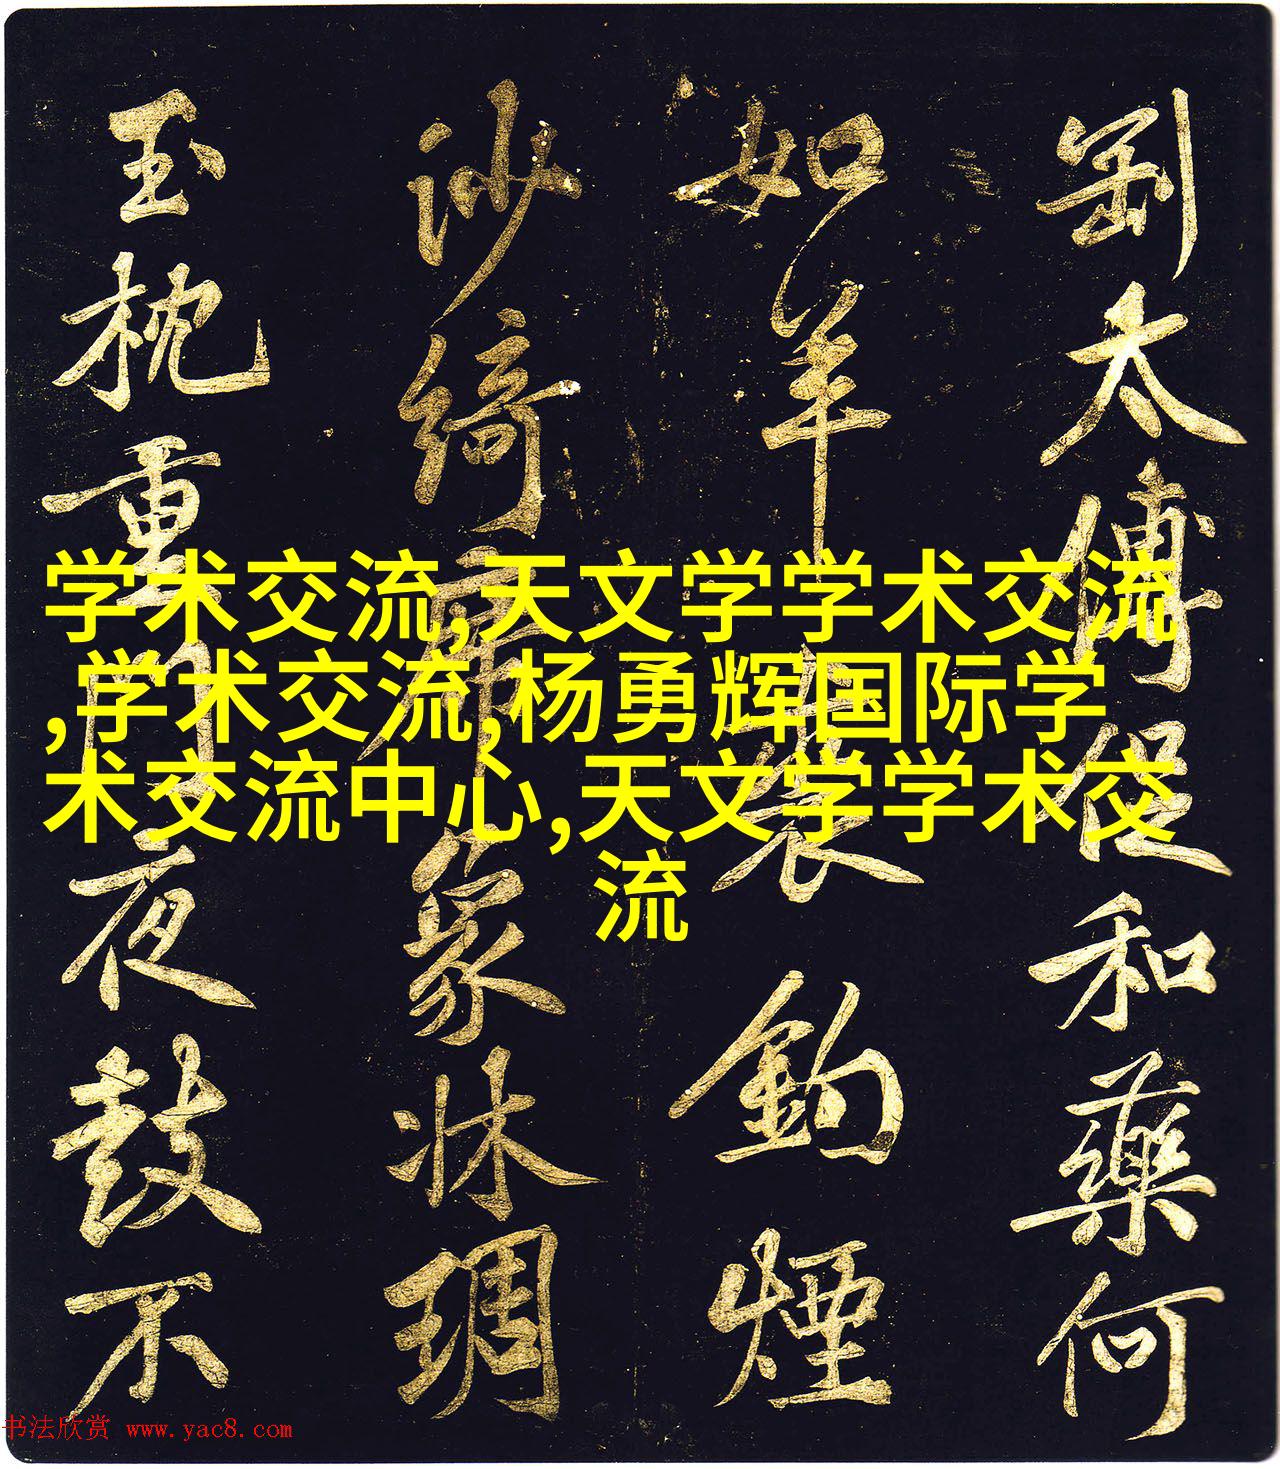 学术交流,天文学学术交流
,学术交流,杨勇辉国际学
术交流中心,天文学学术交
流
太傅促和藥何
如羊鈎煙
沙綺席象牀琱
玉枕重門夜鼓不
书法欣赏 www.yac8.com